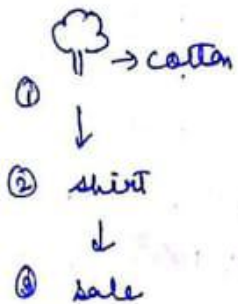 → cotton
①
↓
② shirt
↓
③ sale